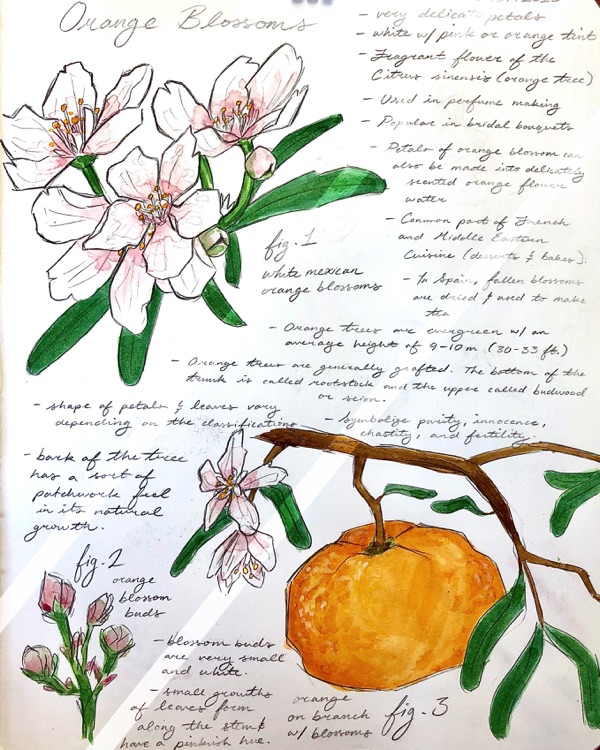 Orange Blossoms
- very delicate petals
- white w/ pink or orange tint
- Fragrant flower of the
Citrus sinensis (orange tree)
- Used in perfume making
- Popular in bridal bouquets
- Petals of orange blossom can
also be made into delicately
scented orange flower
water
- Common part of French
and Middle Eastern
Cuisine (desserts & bakes).
- In Spain, fallen blossoms
are dried & used to make
tea
fig. 1
white mexican
orange blossoms
- Orange trees are evergreen w/ an
average height of 9-10m (30-33 ft.)
- Orange trees are generally grafted. The bottom of the
trunk is called rootstock and the upper called budwood
or scion.
- shape of petals & leaves vary
depending on the classifications
- Symbolize purity, innocence,
chastity, and fertility.
- bark of the tree
has a sort of
patchwork feel
in its natural
growth.
fig. 2
orange
blossom
buds
- blossom buds
are very small
and white.
- small growths
of leaves form
along the stem &
have a pinkish hue.
orange
on branch
w/ blossoms
fig. 3